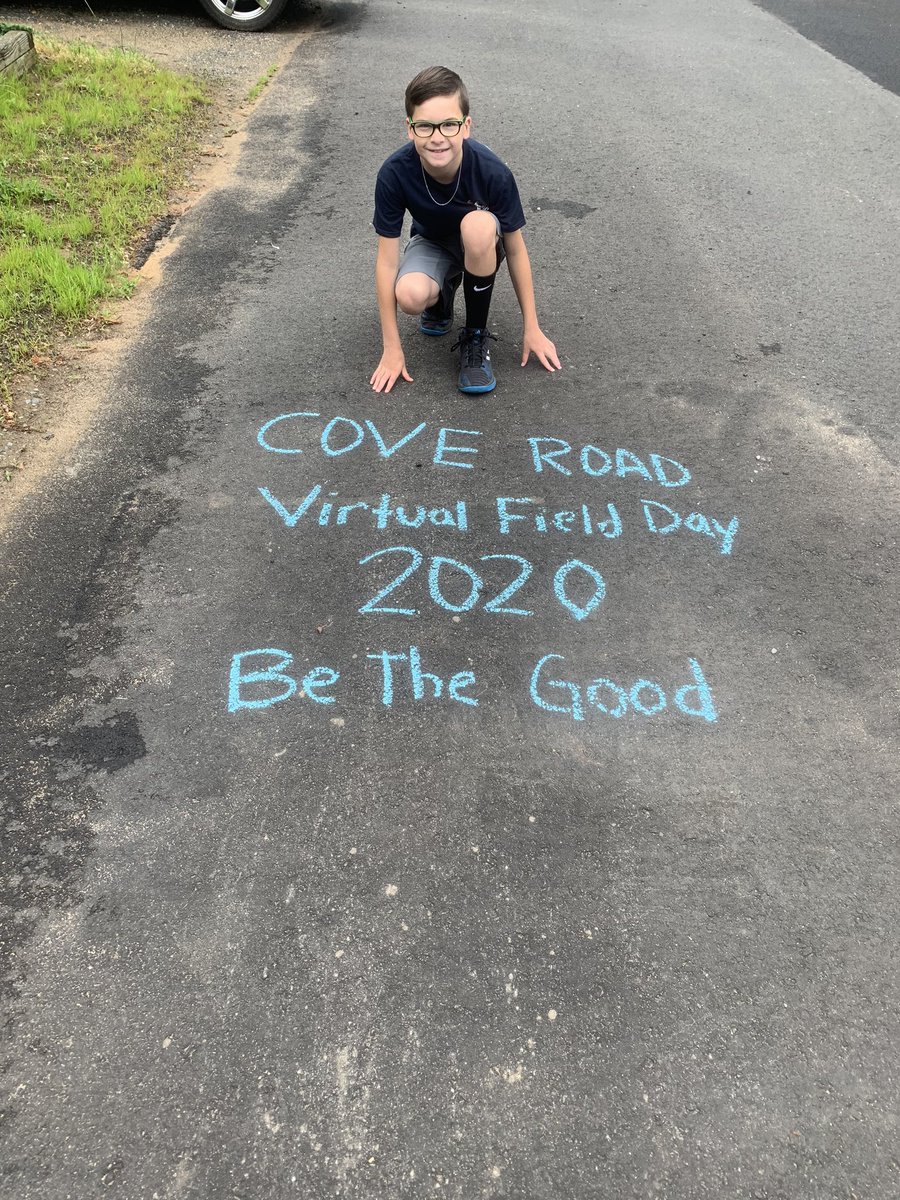 COVE ROAD
Virtual Field Day
2020
Be The Good